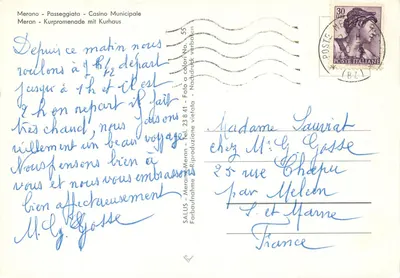 Merano - Passeggiata - Casino Municipale
Meran - Kurpromenade mit Kurhaus
Depuis ce matin nous
roulons à 7 h ½ départ
jusqu'à 1 h et
2 h on repart il fait
très chaud, nous faisons
réellement un beau voyage
Nous pensons bien à
vous et nous vous embrassons
bien affectueusement
M. G. Gosse
SALUS - Merano-Meran - Tel. 23 8 41 - Foto a colori No. S 55
Farbaufnahme - Riproduzione vietata - Nachdruck verboten
POSTE
30
POSTE ITALIANE
(BZ)
Madame Sauriat
chez M. G. Gosse
25 rue
par Melun
S. et Marne
France